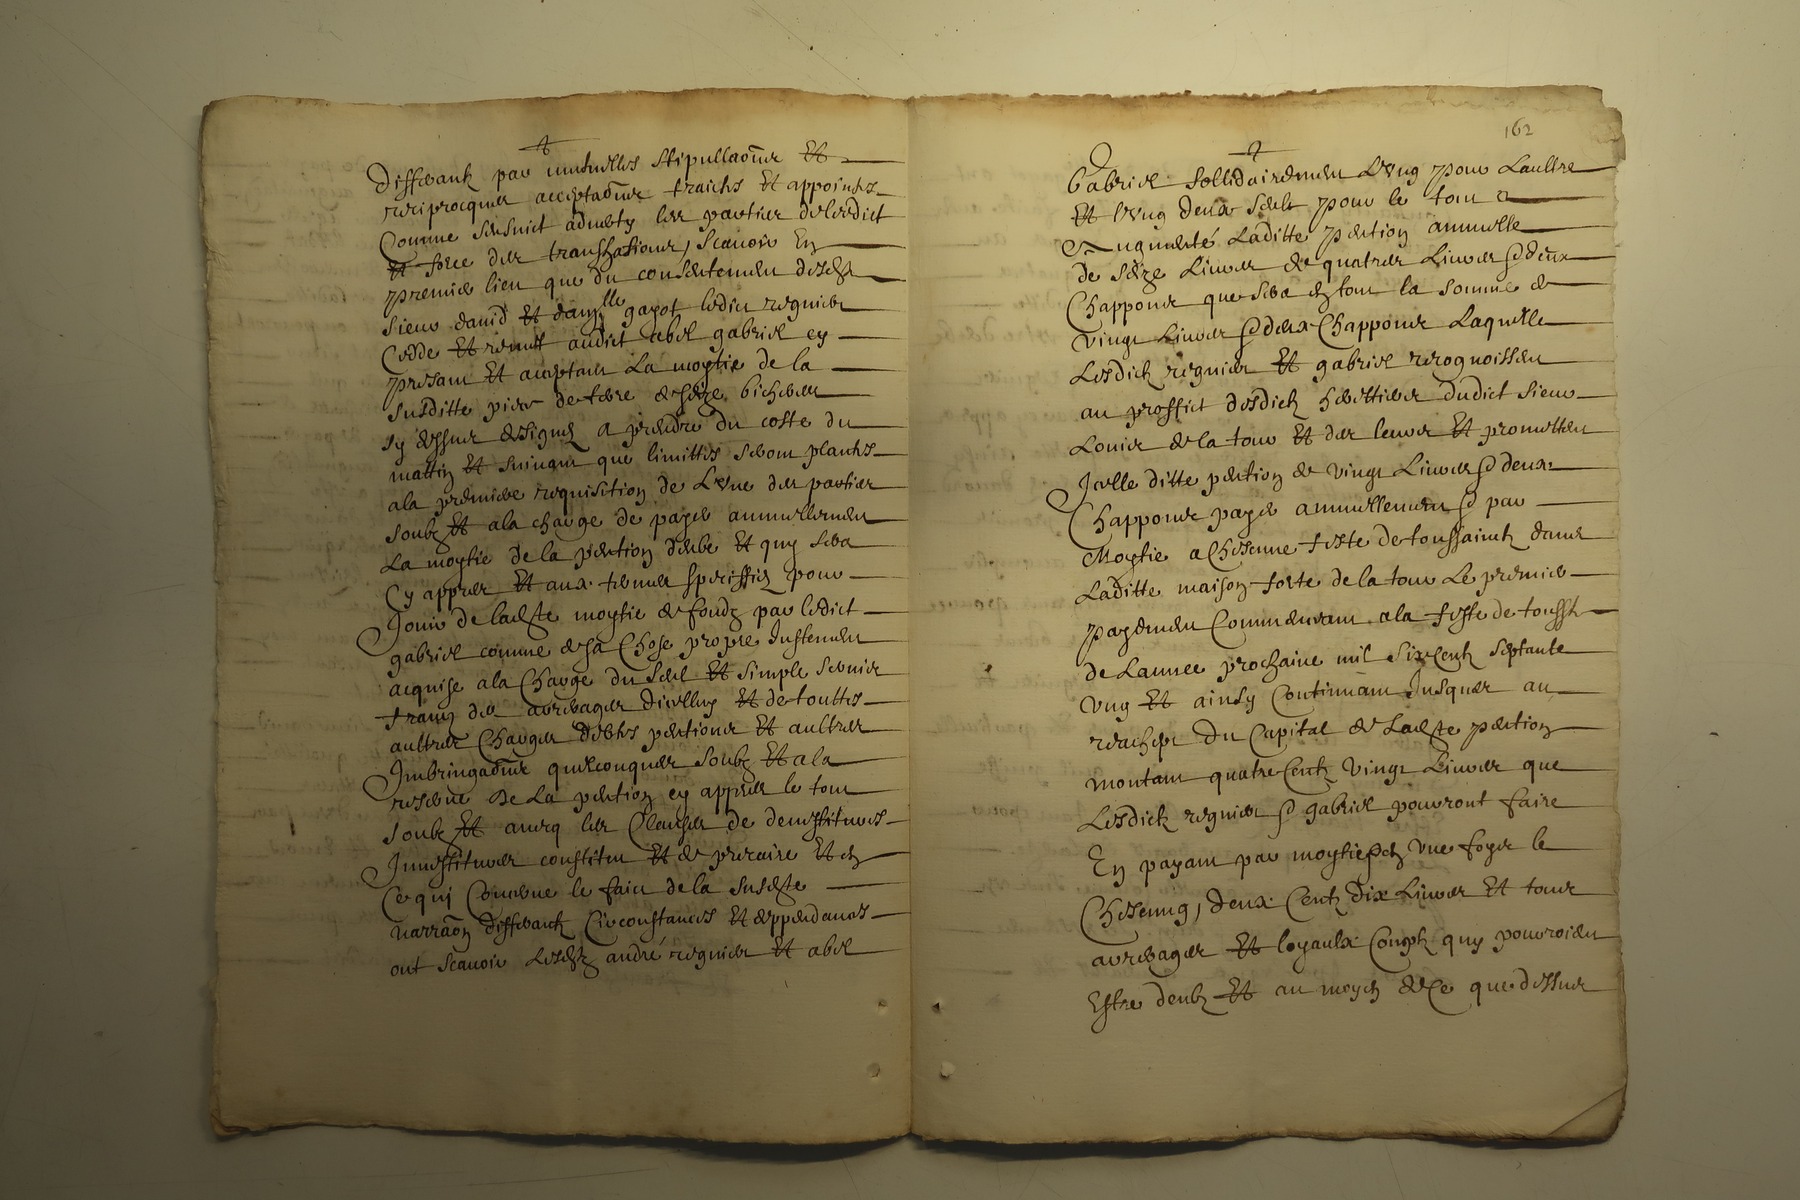 differantz par mutuelles stipullaõns Et
reciprocques acceptaõns traictes Et appointes
Comme sensuict advertys les parties deleedict
Et force des transhations, scavoir En
premier lieu que du consentement desdts
sieur david Et dam.lle gayot ledict regnier
Cedde Et remest audict abel gabriel cy
presant Et acceptant La moytie de la
susditte piece de terre de seize bicherees
sy dessus designez a prendre du coste du
mattin Et suivant que limittes seront plantes
ala premiere requisition de L'vne des parties
soubz Et ala charge de payer annuellement
La moytie de la pention deube Et quy sera
Cy appres Et aux termes speciffiez pour
Jouir de ladte moytie de fondz par ledict
gabriel comme de sa Chose propre Justement
acquise ala Charge du seel Et simple servis
franq des arrerages diceluy Et de touttes
aultres Charges debtes pentions Et aultres
Imbringaõns quelconques soubz Et a la
reserve de La pention cy appres le tout
soubz Et avecq les Clauses de devestitures
Investitures constitut Et de precaire Et en
Ce qui Concerne le faict de la susdte
narraõn differantz Circonstances Et deppendences
ont scavoir Lesdtz andré regnier Et abel
162
Gabriel sollidairement L'vng pour Laultre
Et l'vng deux seul pour le tout
Augmenté Laditte pention annuelle
de seize Livres de quatres Livres & deux
Chappons que sera en tout la somme de
vingt Livres & deux Chappons Laquelle
Lesdictz regnier Et gabriel recognoissent
au proffict desdictz herettiers dudict sieur
Louis de la tour Et des leurs Et promettent
Icelle ditte pention de vingt Livres & deux
Chappons payer annuellement & par
Moytie a Chesenne feste de toussainctz dans
Laditte maison forte de la tour Le premier
payement Commencant a la feste de toussts
de Lannee prochaine mil six Centz septante
vng Et ainsy Continuant Jusques au
reachept du Capital de Ladte pention
montant quatre Centz vingt Livres que
Lesdictz regnier & gabriel pourront faire
En payant par moytie & en vne foys le
Chesenng, deux Centz dix Livres Et tous
arrerages Et loyaulx Compts quy pourroient
Estre deubz Et au moyen de Ce que dessus